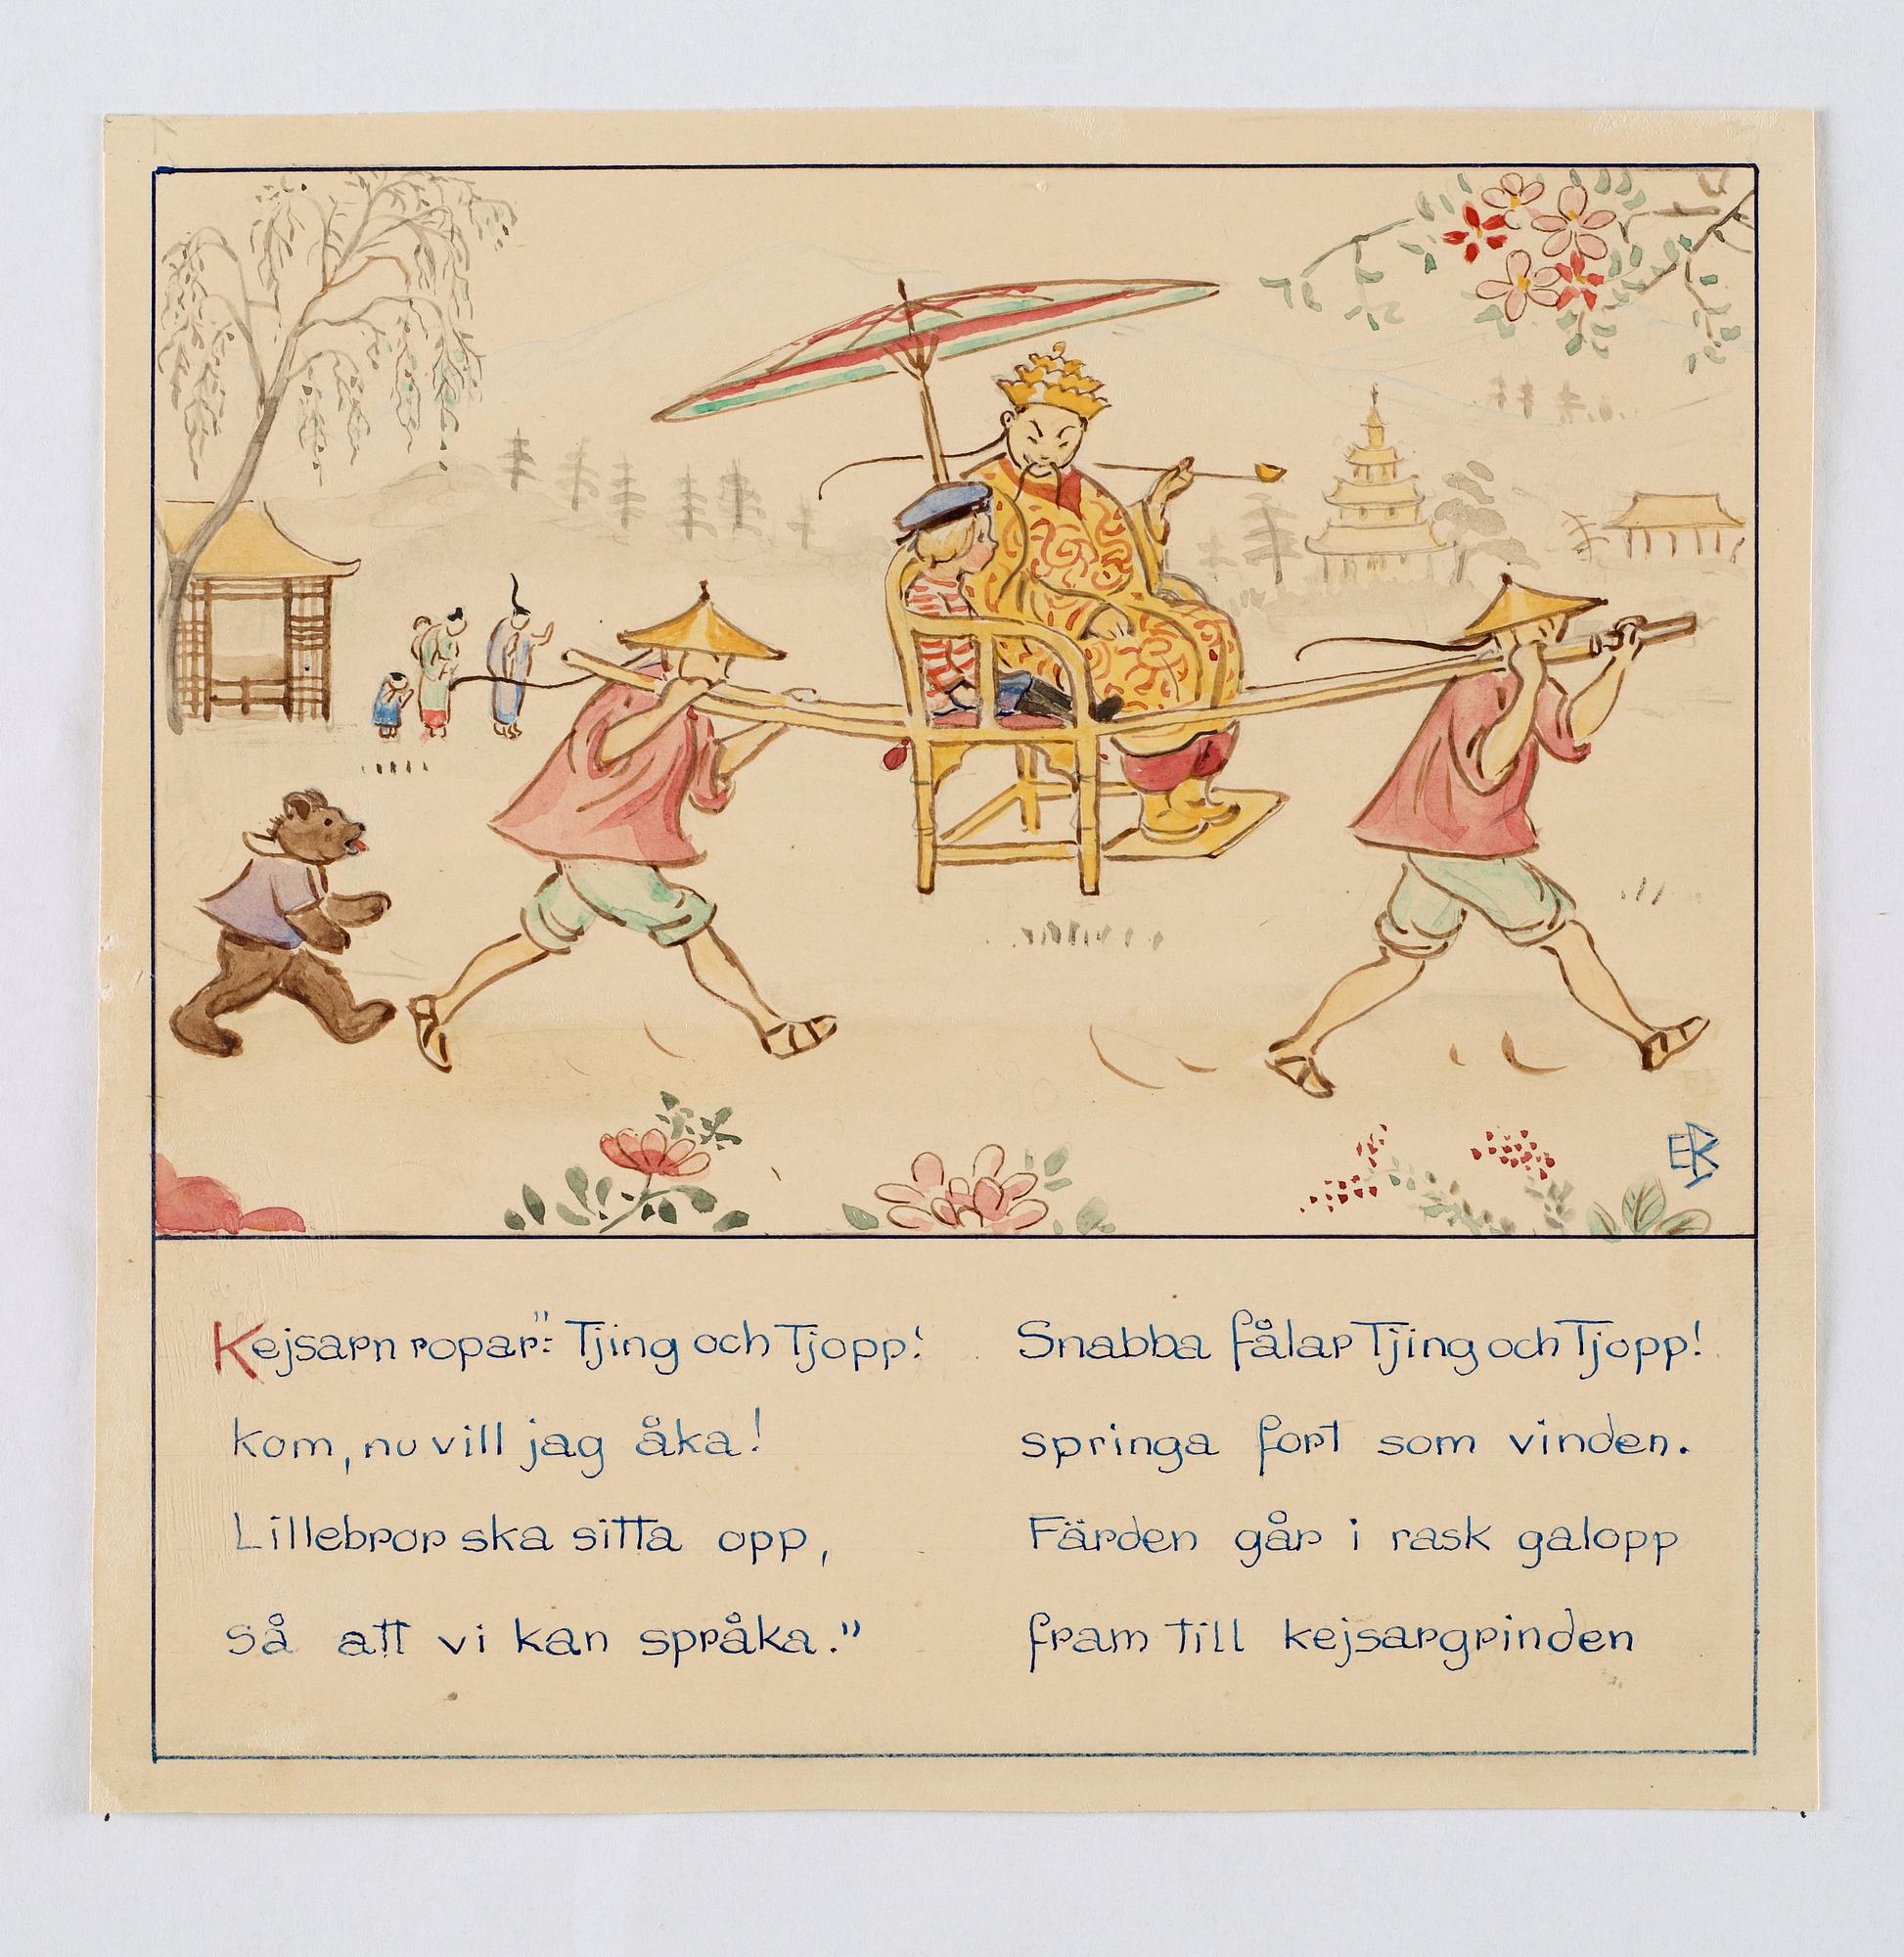 Kejsarn ropar": Tjing och Tjopp!
kom, nu vill jag åka!
Lillebror ska sitta opp,
så att vi kan språka."
Snabba fålar Tjing och Tjopp!
springa fort som vinden.
Färden går i rask galopp
fram till kejsargrinden